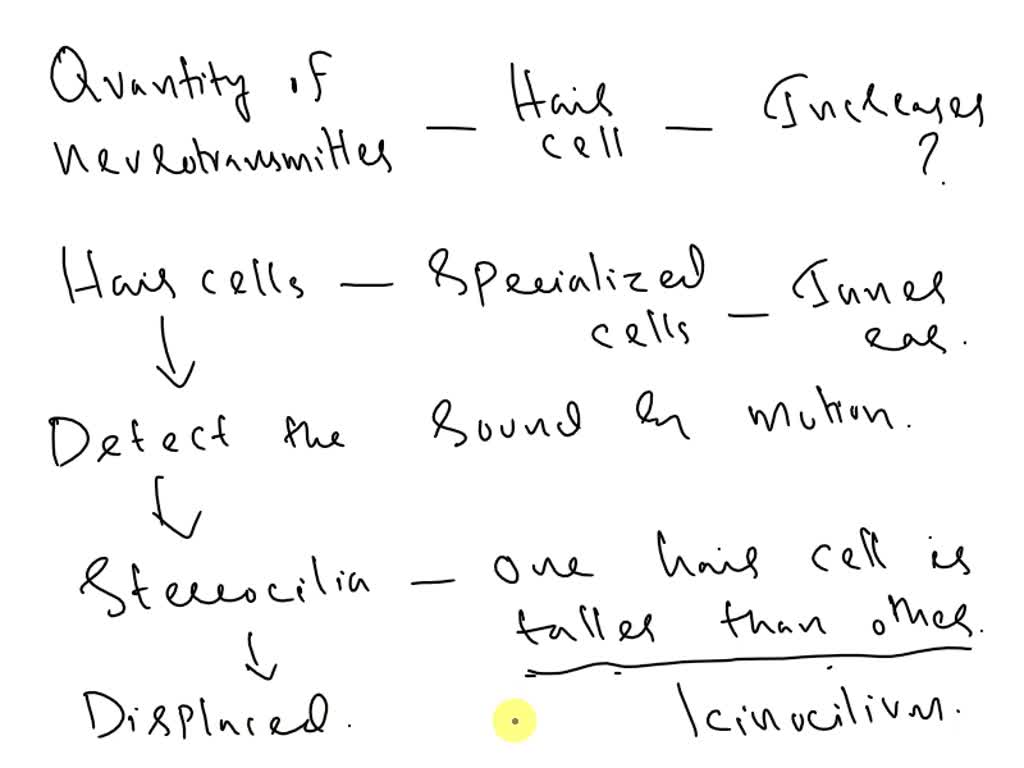 Quantity of
neurotransmitter — Hair cell — Increases ?
Hair cells — Specialized cells — Inner ear.
Detect the sound & motion.
Stereocilia — one hair cell is
taller than other.
Displaced. kinocilium.